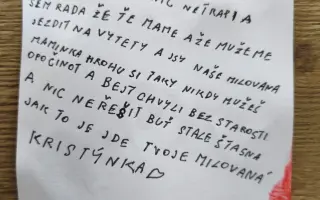 NIC NETRAPI A
SEM RADA ŽE TĚ MAME A ŽE MUŽEME
JEZDIT NA VYTETY A JSY NAŠE MILOVANA
MAMINKA HROHU SI TAKY NIKDY MUŽEŠ
OPOČINOT A BEJT CHVYLI BEZ STAROSTI
A NIC NEŘEŠIT BUŤ STALE ŠTASNA
JAK TO JE JDE TVOJE MILOVANA
KRISTÝNKA♡